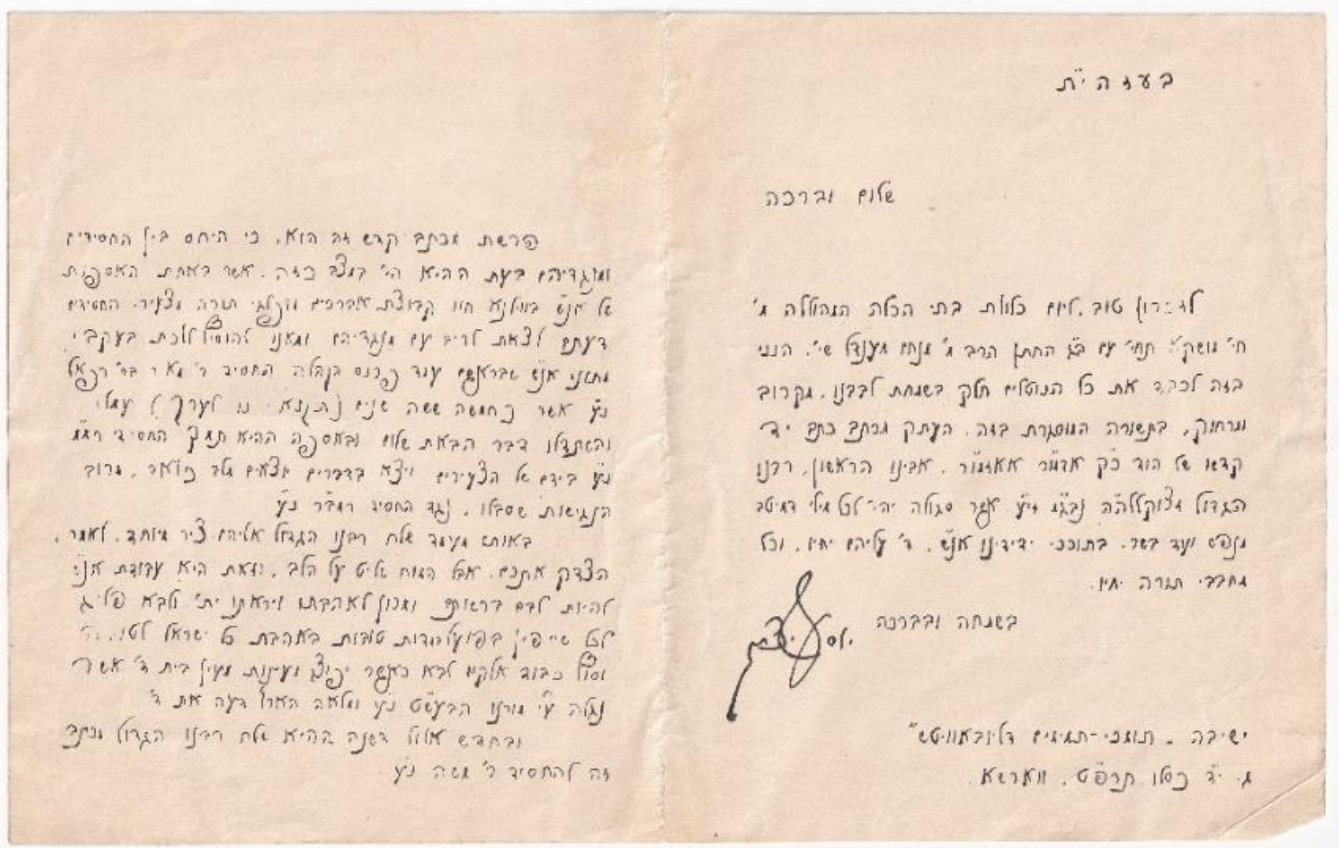 בעזה"ת
שלום וברכה
לזכרון טוב, ליום כלולת בתי הכלה המהוללה מ'
חי' מושקא תחי' עם ב"ג החתן הרב מ' מנחם מענדל שי'. הנני
בזה לכבד את כל הנוטלים חלק בשמחת לבבנו, מקרוב
ומרחוק, בתשורה המוסגרת בזה, העתק מכתב כתב יד
קדשו של הוד כ"ק אדמו"ר אאזמו"ר, אבינו הראשון, רבנו
הגדול מצוקללה"ה נבג"מ זי"ע אשר סגולה יהי' לכל מילי דמיטב
מנפש ועד בשר. בתוככי ידידינו אנ"ש, ד' עליהם יחיו, וכל
מחבבי תורה יחיו.
בשמחה ובברכה
יוסף יצחק
ישיבה - תומכי-תמימים דליובאוויטש"
ג. י"ד כסלו תרפ"ט, ווארשא.
פרשת מכתב קדש זה הוא, כי היחס בין החסידים
ומנגדיהם בעת ההיא הי' במצב כזה, אשר באחת האספות
של אנ"ש בווילנא חיוו קבוצת אברכים מופלגי תורה מצעירי החסידים
דעתם לצאת לריב עם מנגדיהם ומאנו להוסיף ללכת בעקבי
מתוני אנ"ש שבראשם עמד פרנס בקהלה החסיד ר' מאיר בר' רפאל
נ"ע אשר כחמשה ששה שנים (תקנא - נו לערך) עמלו
והשתדלו דבר הבאת שלום ובאספה ההיא תמך החסיד רמ"מ
נ"ע בידם של הצעירים ויצא בדברים יוצאים מלב כואב, מרוב
הנגישות שסבלו, נגד החסיד רמב"ר נ"ע
באותו מעמד שלח רבנו הגדול אליהם ציר מיוחד, לאמר,
הצדק אתכם, אבל המוח שליט על הלב, וזאת היא עבודת אנ"ש
להיות לבם ברשותם ומכוון לאהבתו ויראתו ית' ולבא
לכל בפועל במדות טובות באהבת כל ישראל
וסוף כבוד אלקים לבא כאשר יפוצו מעינות מעין בית ד' אשר
נגלה ע"י מורנו הבעש"ט נ"ע ומלאה הארץ דעה את ד'
ובחדש אלול דשנה ההיא שלח רבנו הגדול מכתב
זה להחסיד ר' משה נ"ע